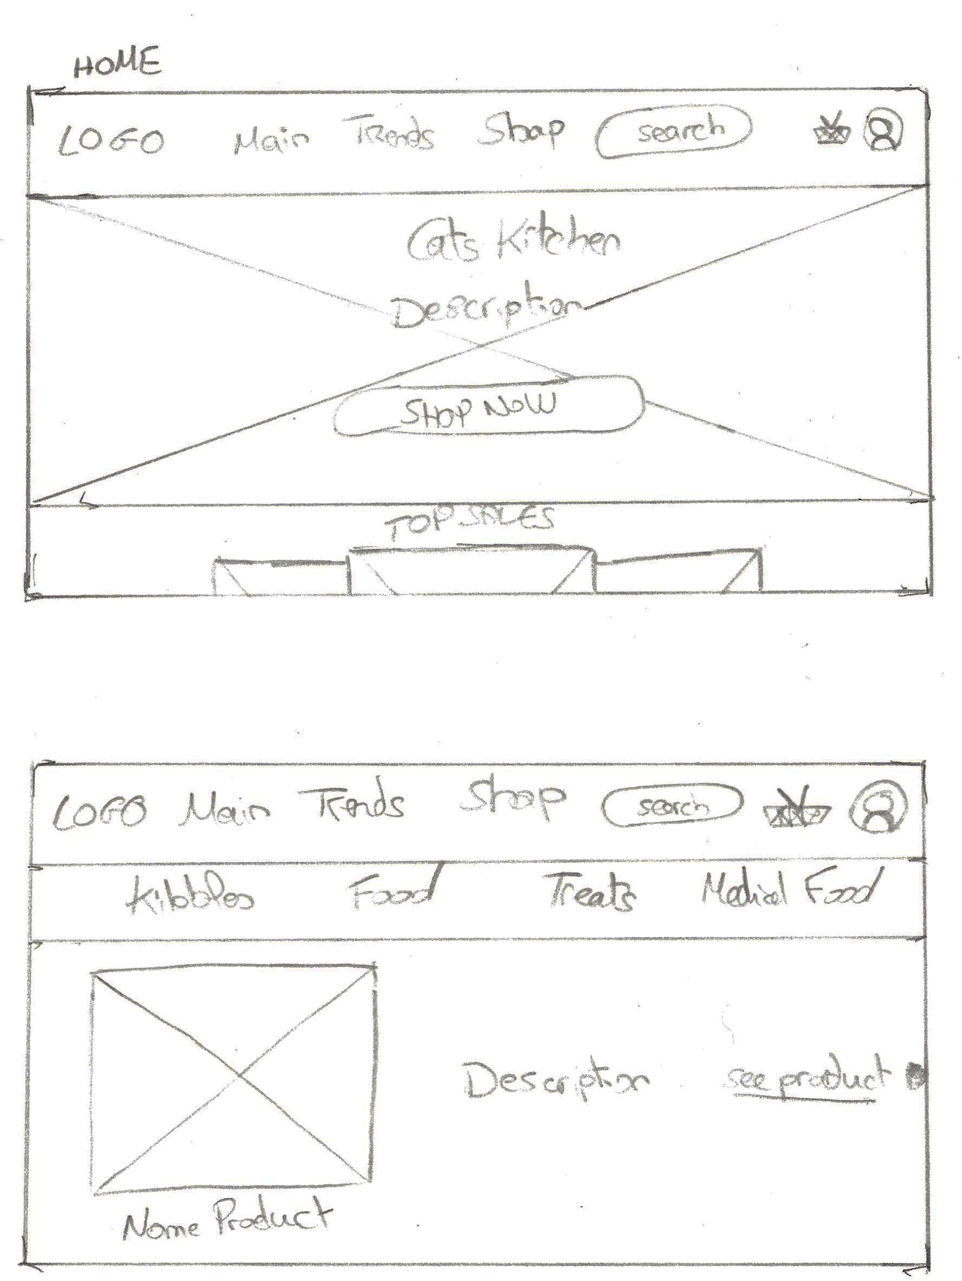 HOME
LOGO Main Trends Shop search
Cats Kitchen
Description
SHOP NOW
TOP SALES
LOGO Main Trends Shop search
Kibbles Food Treats Medical Food
Description see product
Name Product